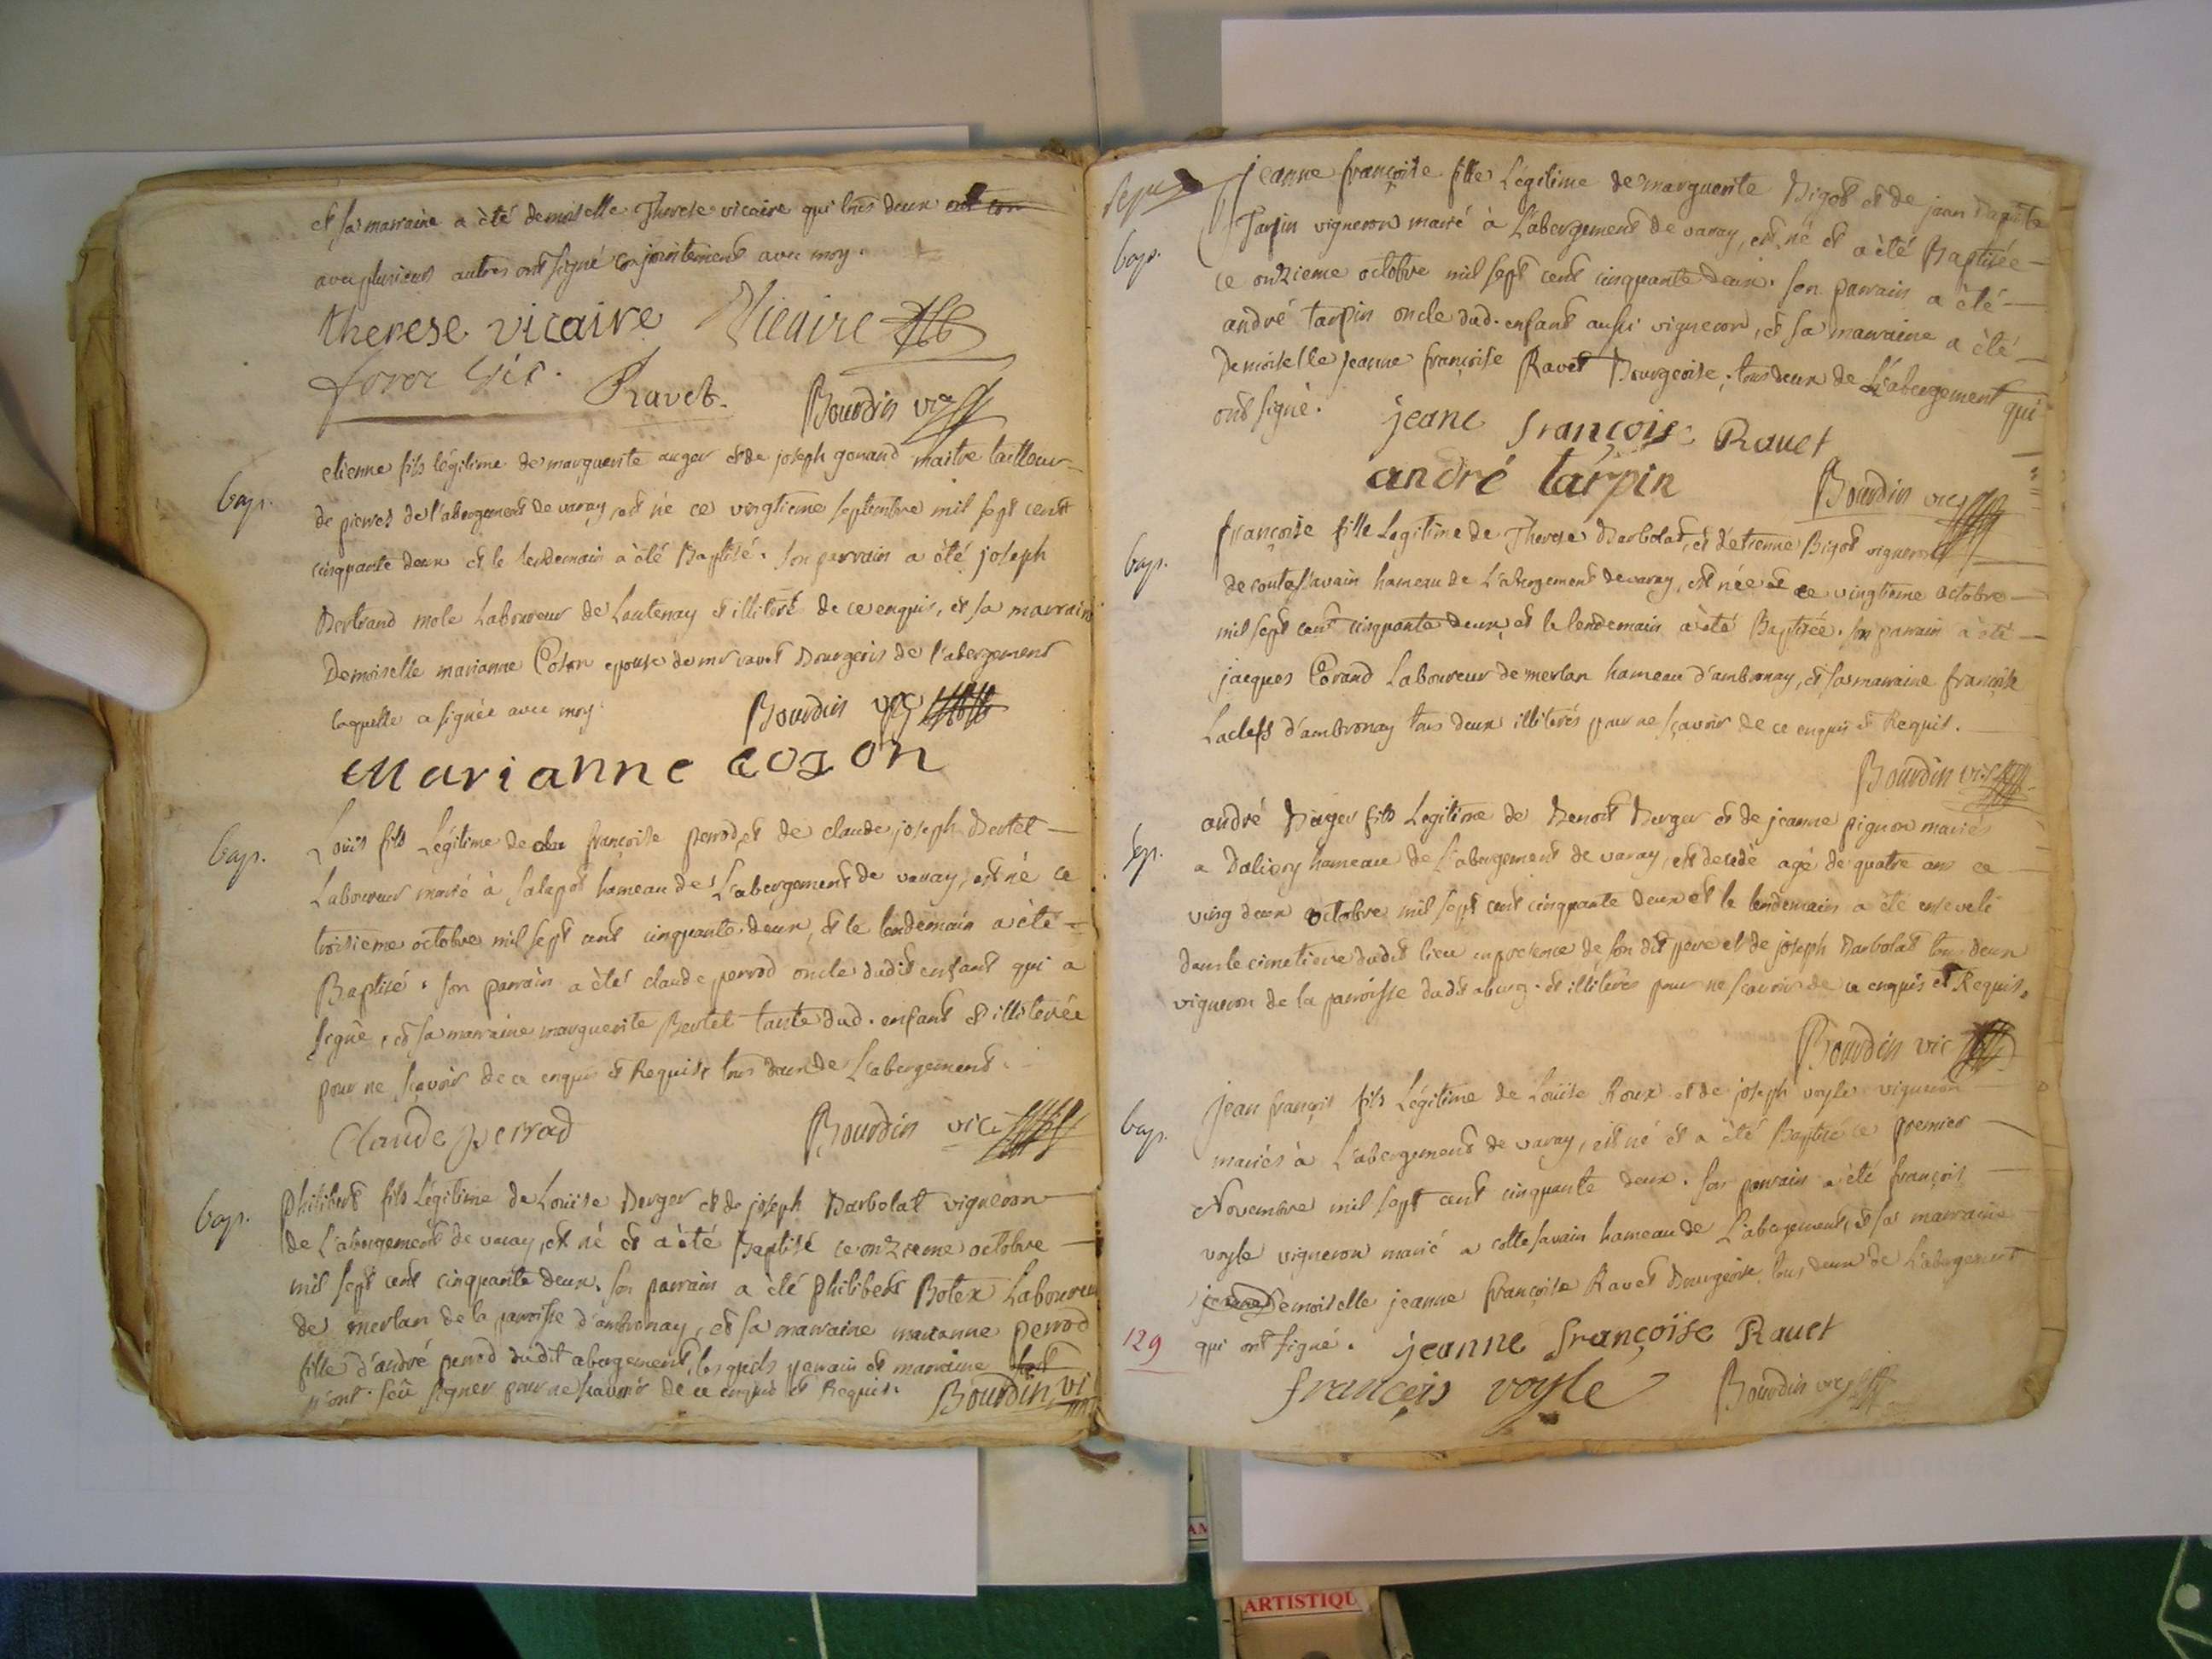 et sa marraine a été demoiselle Therese vicaire qui tous deux ont con
avec plusieurs autres ont signé conjointement avec moy.
therese vicaire Vicaire
Ravet. Bourdin vic
bap.
etienne fils légitime de marguerite auger et de joseph gonand maitre tailleur
de pierres de l'abergement de varay, est né ce vingtieme septembre mil sept cent
cinquante deux et le lendemain a été Baptisé. son parrain a été joseph
Bertrand mole Laboureur de Lautenay et illiteré de ce enquis, et sa marraine
Demoiselle marianne Cozon epouse de mr ravet Bourgeois de l'abergement
laquelle a signée avec moy. Bourdin vic
Marianne cozon
bap.
Louis fils Légitime de françoise perrod et de claude joseph Bertet
Laboureur marié à Salapot hameau de L'abergement de varay, est né ce
troisieme octobre mil sept cent cinquante deux, et le lendemain a été
Baptisé. son parrain a été claude perrod oncle dudit enfant qui a
signé, et sa marraine marguerite Bertet tante dud. enfant et illiterée
pour ne sçavoir de ce enquis et Requise tous deux de L'abergement.
Claude perrod Bourdin vic
bap.
Philibert fils Légitime de Loüise Berger et de joseph Barbolat vigneron
de L'abergement de varay, est né et a été Baptisé ce onzieme octobre
mil sept cent cinquante deux. son parrain a été Philibert Botex Laboureur
de merlan de la paroisse d'ambronay, et sa marraine marianne perrod
fille d'andré perrod dudit abergement, lesquels parain et marraine
n'ont seû signer pour ne sçavoir de ce enquis et Requis. Bourdin vi
Sepu
bap.
jeanne françoise fille Légitime de marguerite Bigot et de jean Baptiste
Tarpin vigneron marié à L'abergement de varay, est né et a été Baptisée
ce onzieme octobre mil sept cent cinquante deux. son parrain a été
andré tarpin oncle dud. enfant aussi vigneron, et sa marraine a été
Demoiselle jeanne françoise Ravet Bourgeoise, tous deux de L'abergement qui
ont signé. jeane françoise Ravet
andré tarpin Bourdin vic
bap.
françoise fille Legitime de Therese Barbolat, et d'etienne Bigot vigneron
de coutessavain hameau de L'abergement de varay, est née ce vingtieme octobre
mil sept cent cinquante deux, et le lendemain a été Baptisée. son parrain a été
jacques Corand Laboureur de merlan hameau d'ambronay, et sa marraine françoise
Lacless d'ambronay tous deux illiterés pour ne sçavoir de ce enquis et Requis.
Bourdin vic
sep.
andré Berger fils Legitime de Benoit Berger et de jeanne pignon mariés
a Dalivoy hameau de L'abergement de varay, est decedé agé de quatre ans ce
ving deux octobre mil sept cent cinquante deux et le lendemain a été enseveli
dans le cimetiere dudit lieu en presence de son dit pere et de joseph Barbolat tous deux
vigneron de la paroisse dudit aberg. et illiterés pour ne sçavoir de ce enquis et Requis.
Bourdin vic
bap.
jean françois fils Légitime de Loüise Roux et de joseph voyle vigneron
mariés à L'abergement de varay, est né et a été Baptisé ce premier
Novembre mil sept cent cinquante deux. son parrain a été françois
voyle vigneron marié a cottesavain hameau de L'abergement, et sa marraine
jeanne Demoiselle jeanne françoise Ravet Bourgeoise tous deux de L'abergement
129 qui ont signé. jeanne françoise Ravet
françois voyle Bourdin vic
ARTISTIQU